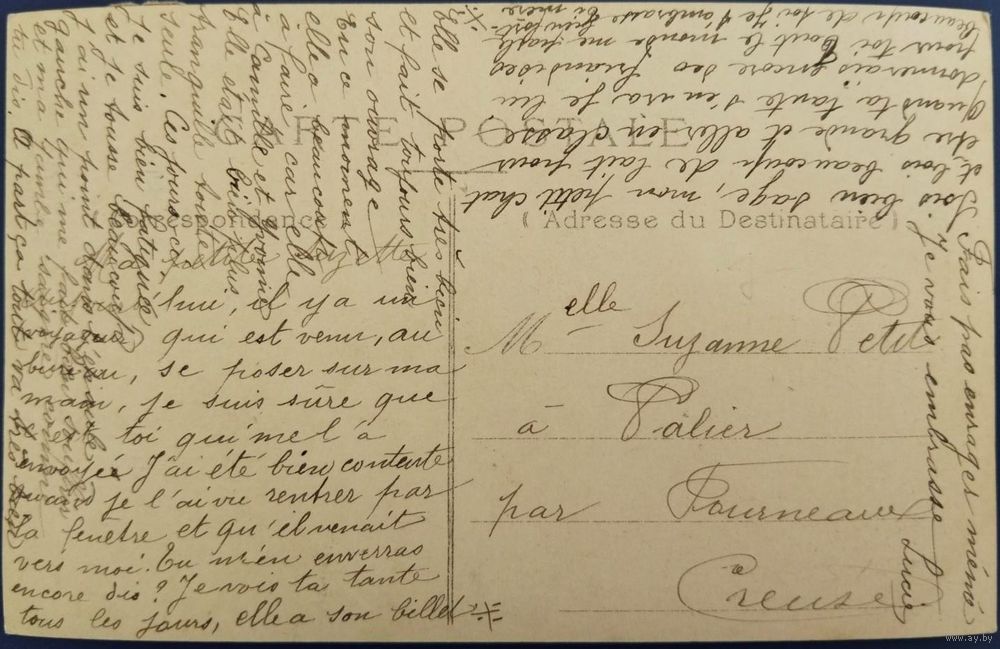 CARTE POSTALE
Correspondance
(Adresse du Destinataire)
Melle Suzanne Petit
à Palier
par Fourneaux
Creuse
Ma petite
il y a un
voyageur qui est venu, au
bureau, se poser sur ma
main, je suis sûre que
toi qui me l'a
envoyée J'ai été bien contente
quand je l'ai vu rentrer par
la fenêtre et qu'il venait
vers moi. Tu m'en enverras
encore dis? Je vois ta tante
tous les jours, elle a son billet
Elle se porte très bien
et fait toujours bien
son ouvrage
En ce moment
elle a beaucoup
à faire, car elle
à Camille et Yvonne
Elle était plus
tranquille toute
seule. Ces jours ci,
je suis bien fatiguée
et je tousse beaucoup
j'ai un point dans
gauche qui me fait
et ma
tu dis. A part ça tout va très bien
Sois bien sage, mon petit chat
et bois beaucoup de lait pour
être grande et aller en classe
Quand ta tante s'en ira je lui
donnerais encore des friandises
pour toi Tout le monde me parle
beaucoup de toi Je t'embrasse bien fort
Ti mère
Fais pas enrager mémé
Je vous embrasse Lucie
www.ay.by